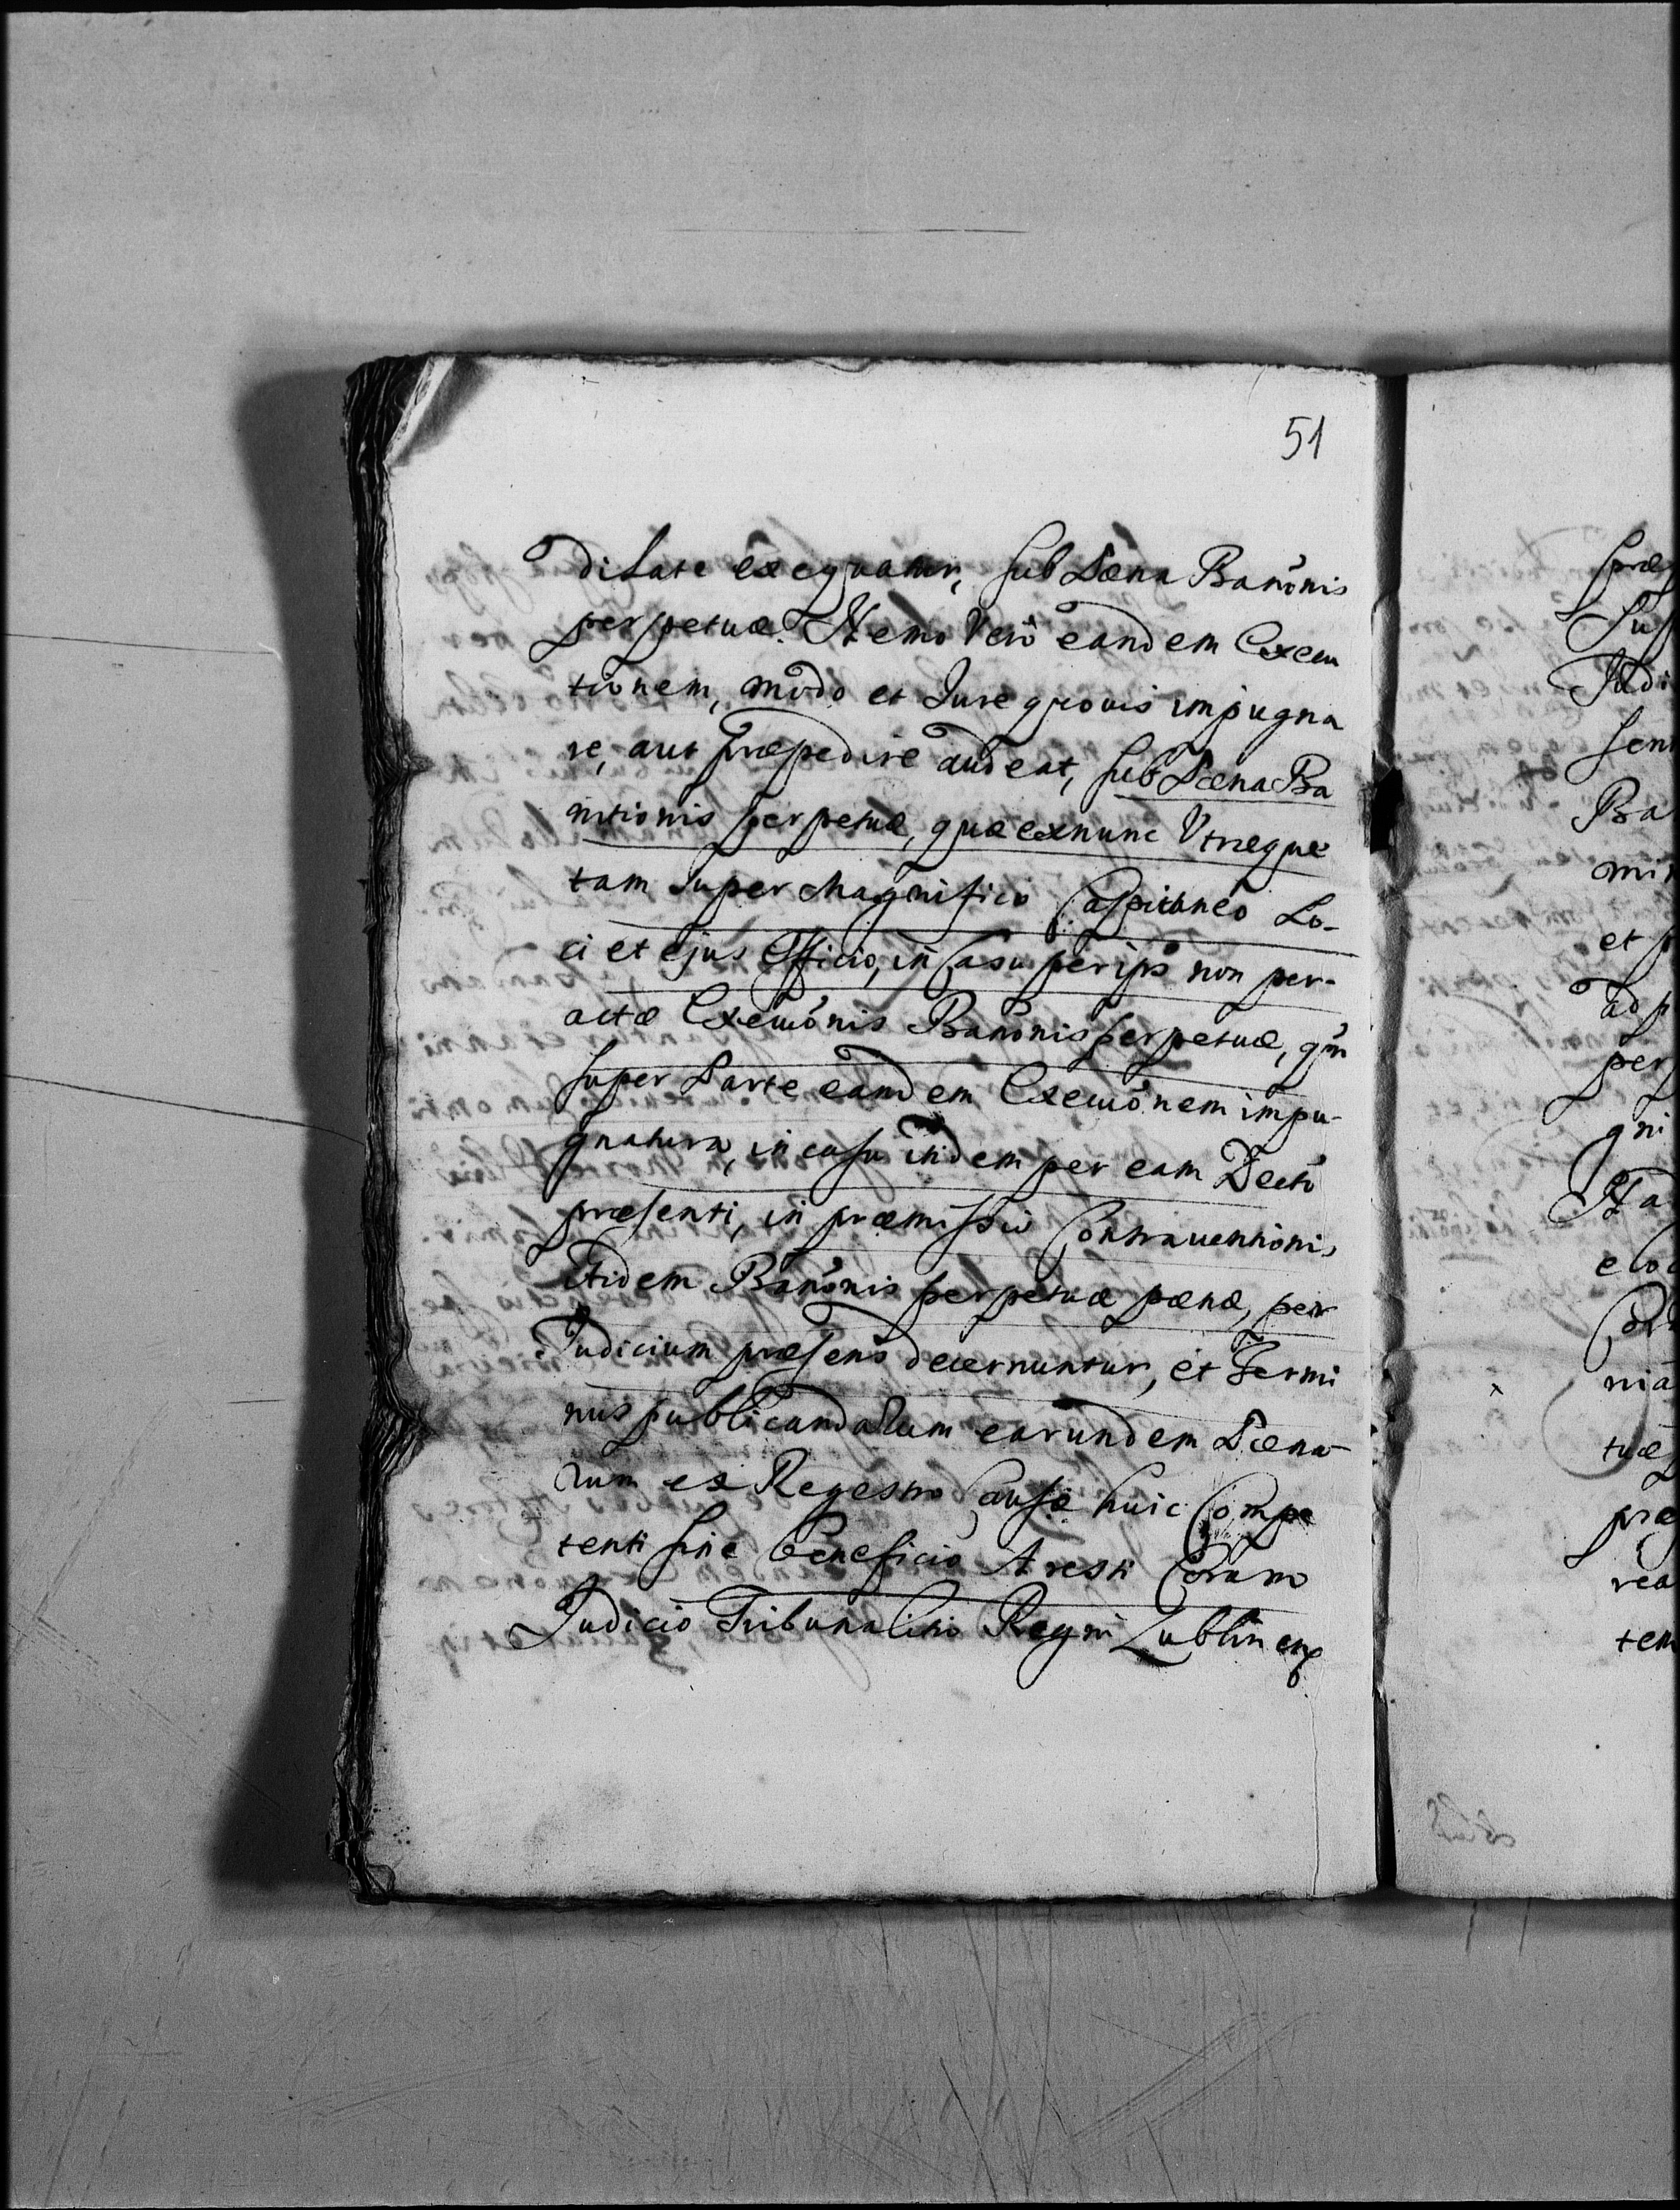 51
ditate exequatur, sub Pæna Banōnis
perpetuæ. Nemo Verò eandem Execu
tionem, modo et Jure quovis impugna
re, aut præpedire audeat, sub Pæna Ba
nitionis perpetuæ, quæ exnunc Utræque
tam super Magnifico Capitaneo Lo-
ci et ejus Officio, in Casu per ips̄ non per-
actæ Execuōnis Banōnis perpetuæ, qm̄
super Parte eandem Execuōnem impu-
gnatura, in casu itidem per eam Decto
præsenti, in præmissis Contraventionis
Itidem Banōnis perpetuæ pænæ, per
Judicium præsens decernuntur, et Termi
nus publicandarum earundem Pæna
rum ex Regestro Causæ huic Compe
tenti sine beneficio Aresti Coram
Judicio Tribunalitio Regni Lublinen
præ
Su
Judi
sen
Ba
mi
et p
ad p
per
gni
Ha
elo
Con
niā
tuæ
præ
rea
tem